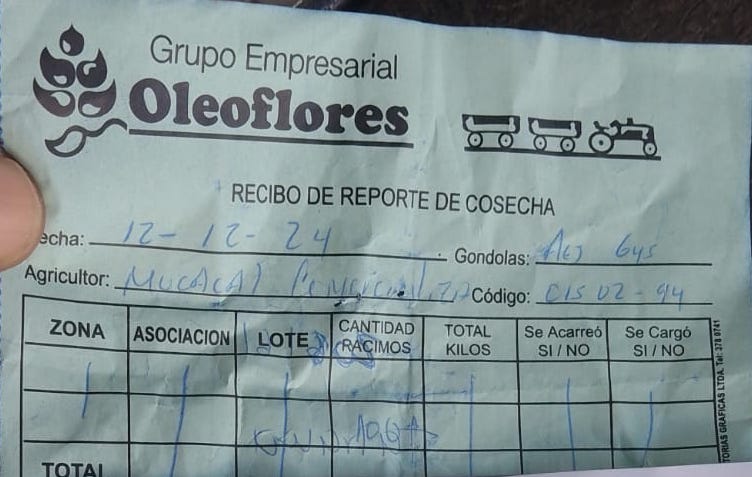 Grupo Empresarial
Oleoflores
RECIBO DE REPORTE DE COSECHA
echa: 12-12-24 Gondolas:
Agricultor: Código: 02-94
ZONA ASOCIACION LOTE CANTIDAD RACIMOS TOTAL KILOS Se Acarreó SI / NO Se Cargó SI / NO
TOTAL
TORIAS GRAFICAS LTDA. Tel: 378 9741